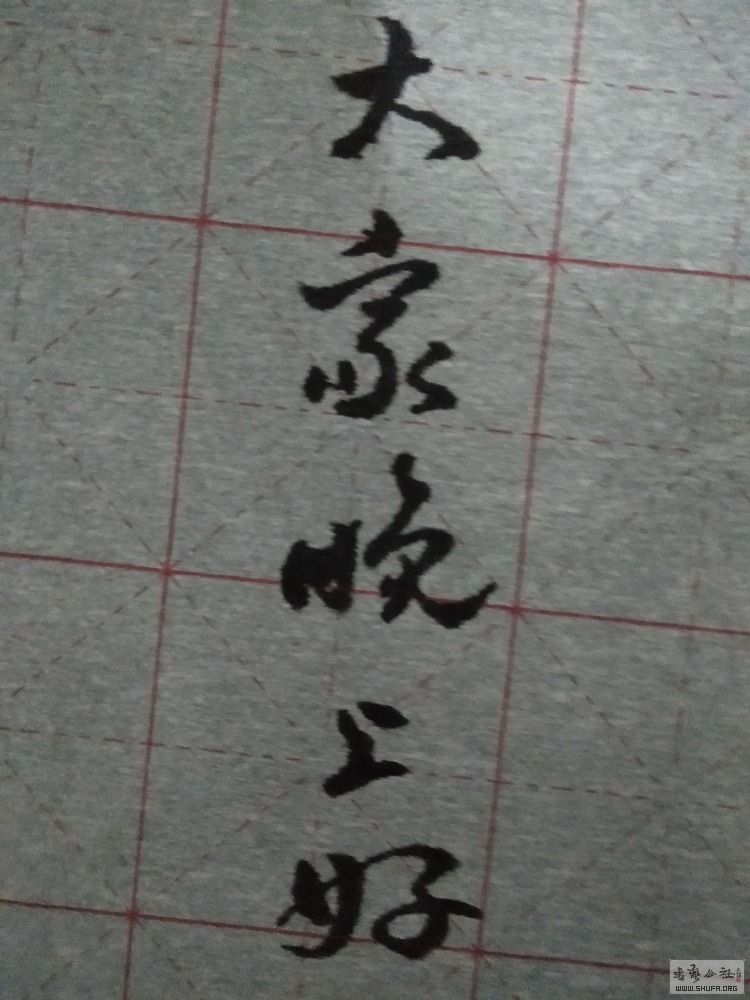 大家晚上好
书艺公社
WWW.SHUFA.ORG